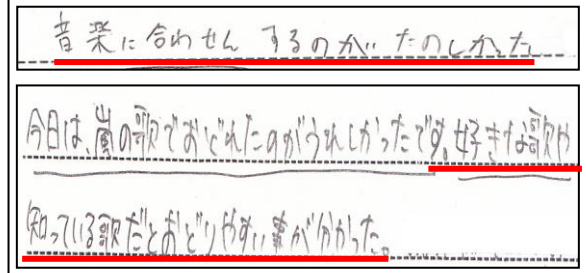 音楽に合わせんするのがたのしかった
今日は、嵐の歌でおどれたのがうれしかったです。好きな歌や
知っている歌だとおどりやすい事が分かった。